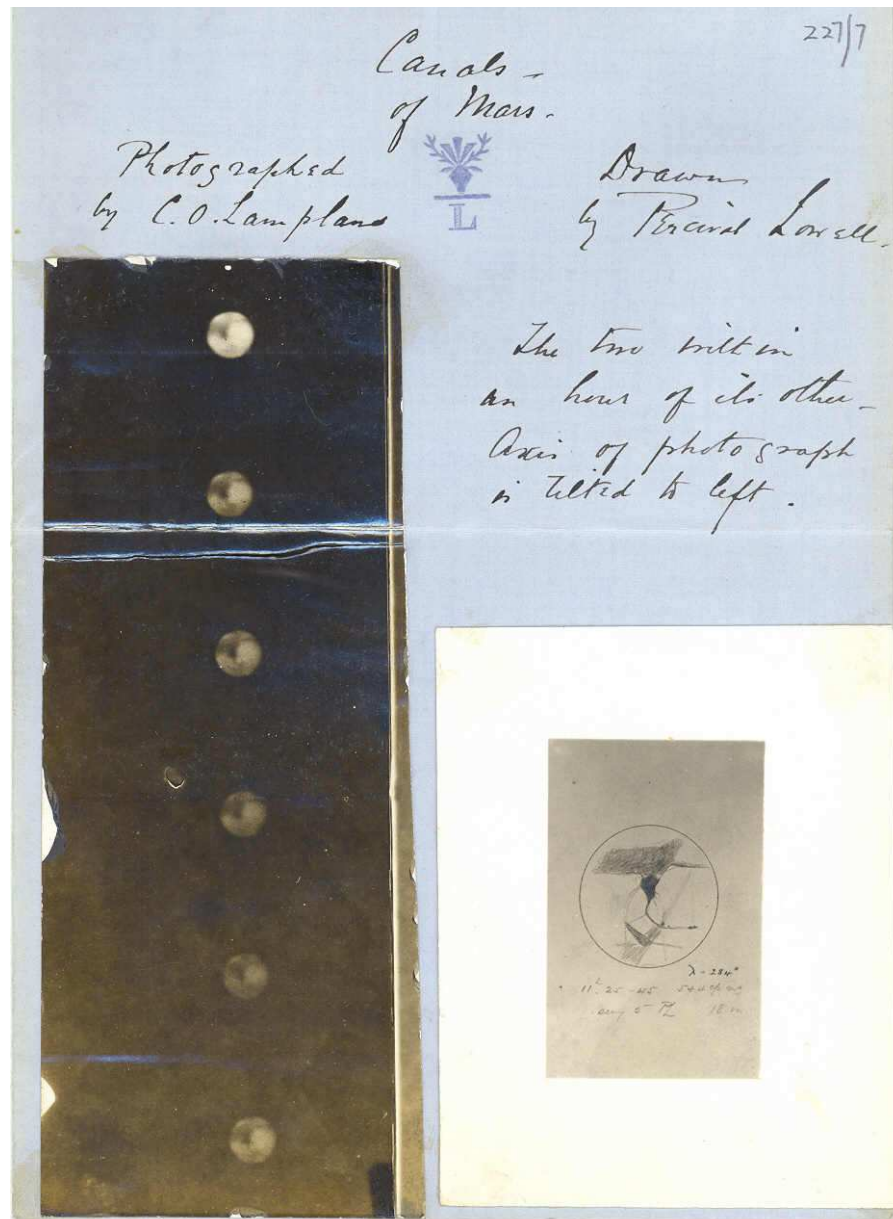 227/7
Canals -
of Mars.
Photographed
by C.O. Lampland
L
Drawn
by Percival Lowell.
The two within
an hour of its other -
Axis of photograph
is tilted to left.
λ - 284°
11h. 25 - 45
18 in